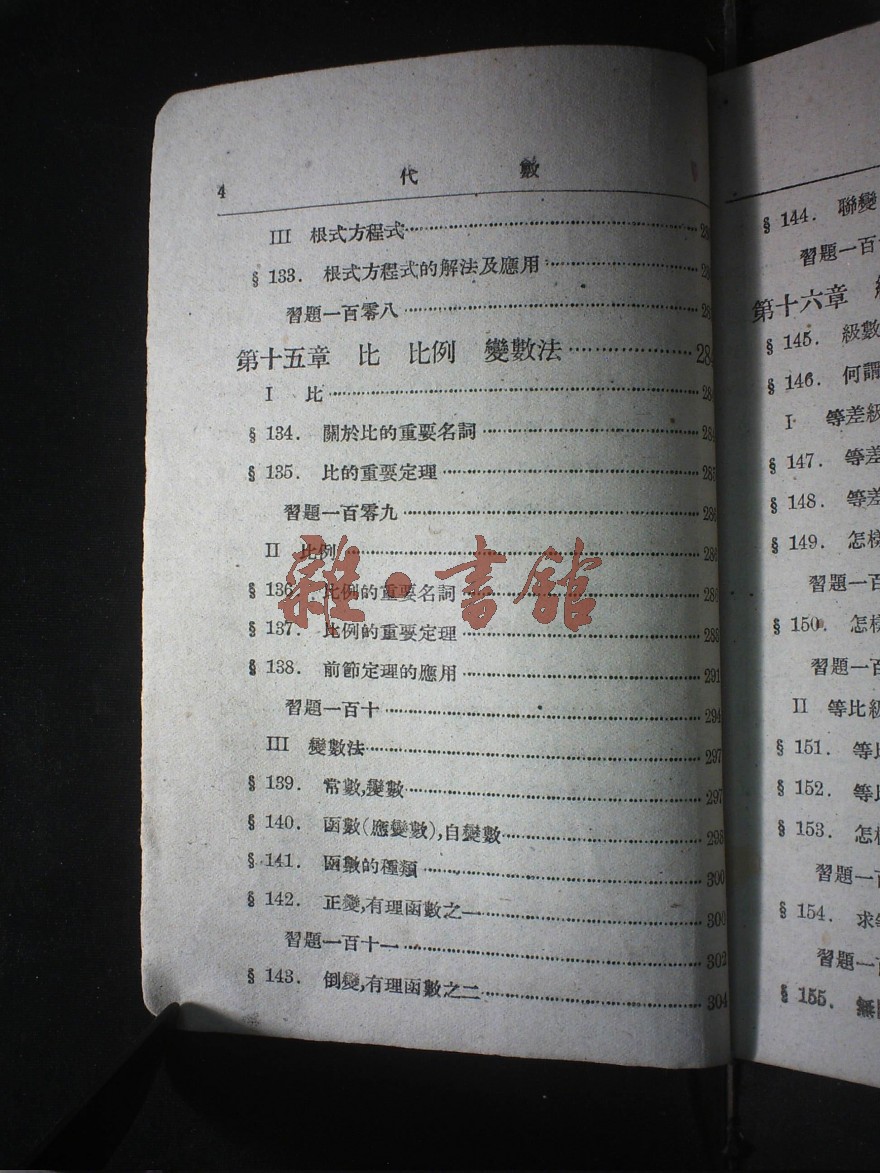 4 代 數
III 根式方程式
§ 133. 根式方程式的解法及應用
習題一百零八
第十五章 比 比例 變數法 284
I 比 284
§ 134. 關於比的重要名詞 284
§ 135. 比的重要定理 285
習題一百零九 286
II 比例 286
§ 136. 比例的重要名詞 286
§ 137. 比例的重要定理 288
§ 138. 前節定理的應用 291
習題一百十 294
III 變數法 297
§ 139. 常數,變數 297
§ 140. 函數(應變數),自變數 298
§ 141. 函數的種類 300
§ 142. 正變,有理函數之一 300
習題一百十一 302
§ 143. 倒變,有理函數之二 304
雜·書館
§ 144. 聯變
習題一百
第十六章
§ 145. 級數
§ 146. 何謂
I 等差級
§ 147. 等差
§ 148. 等差
§ 149. 怎樣
習題一百
§ 150. 怎樣
習題一百
II 等比級
§ 151. 等比
§ 152. 等比
§ 153. 怎樣
習題一
§ 154. 求等
習題一
§ 155. 無